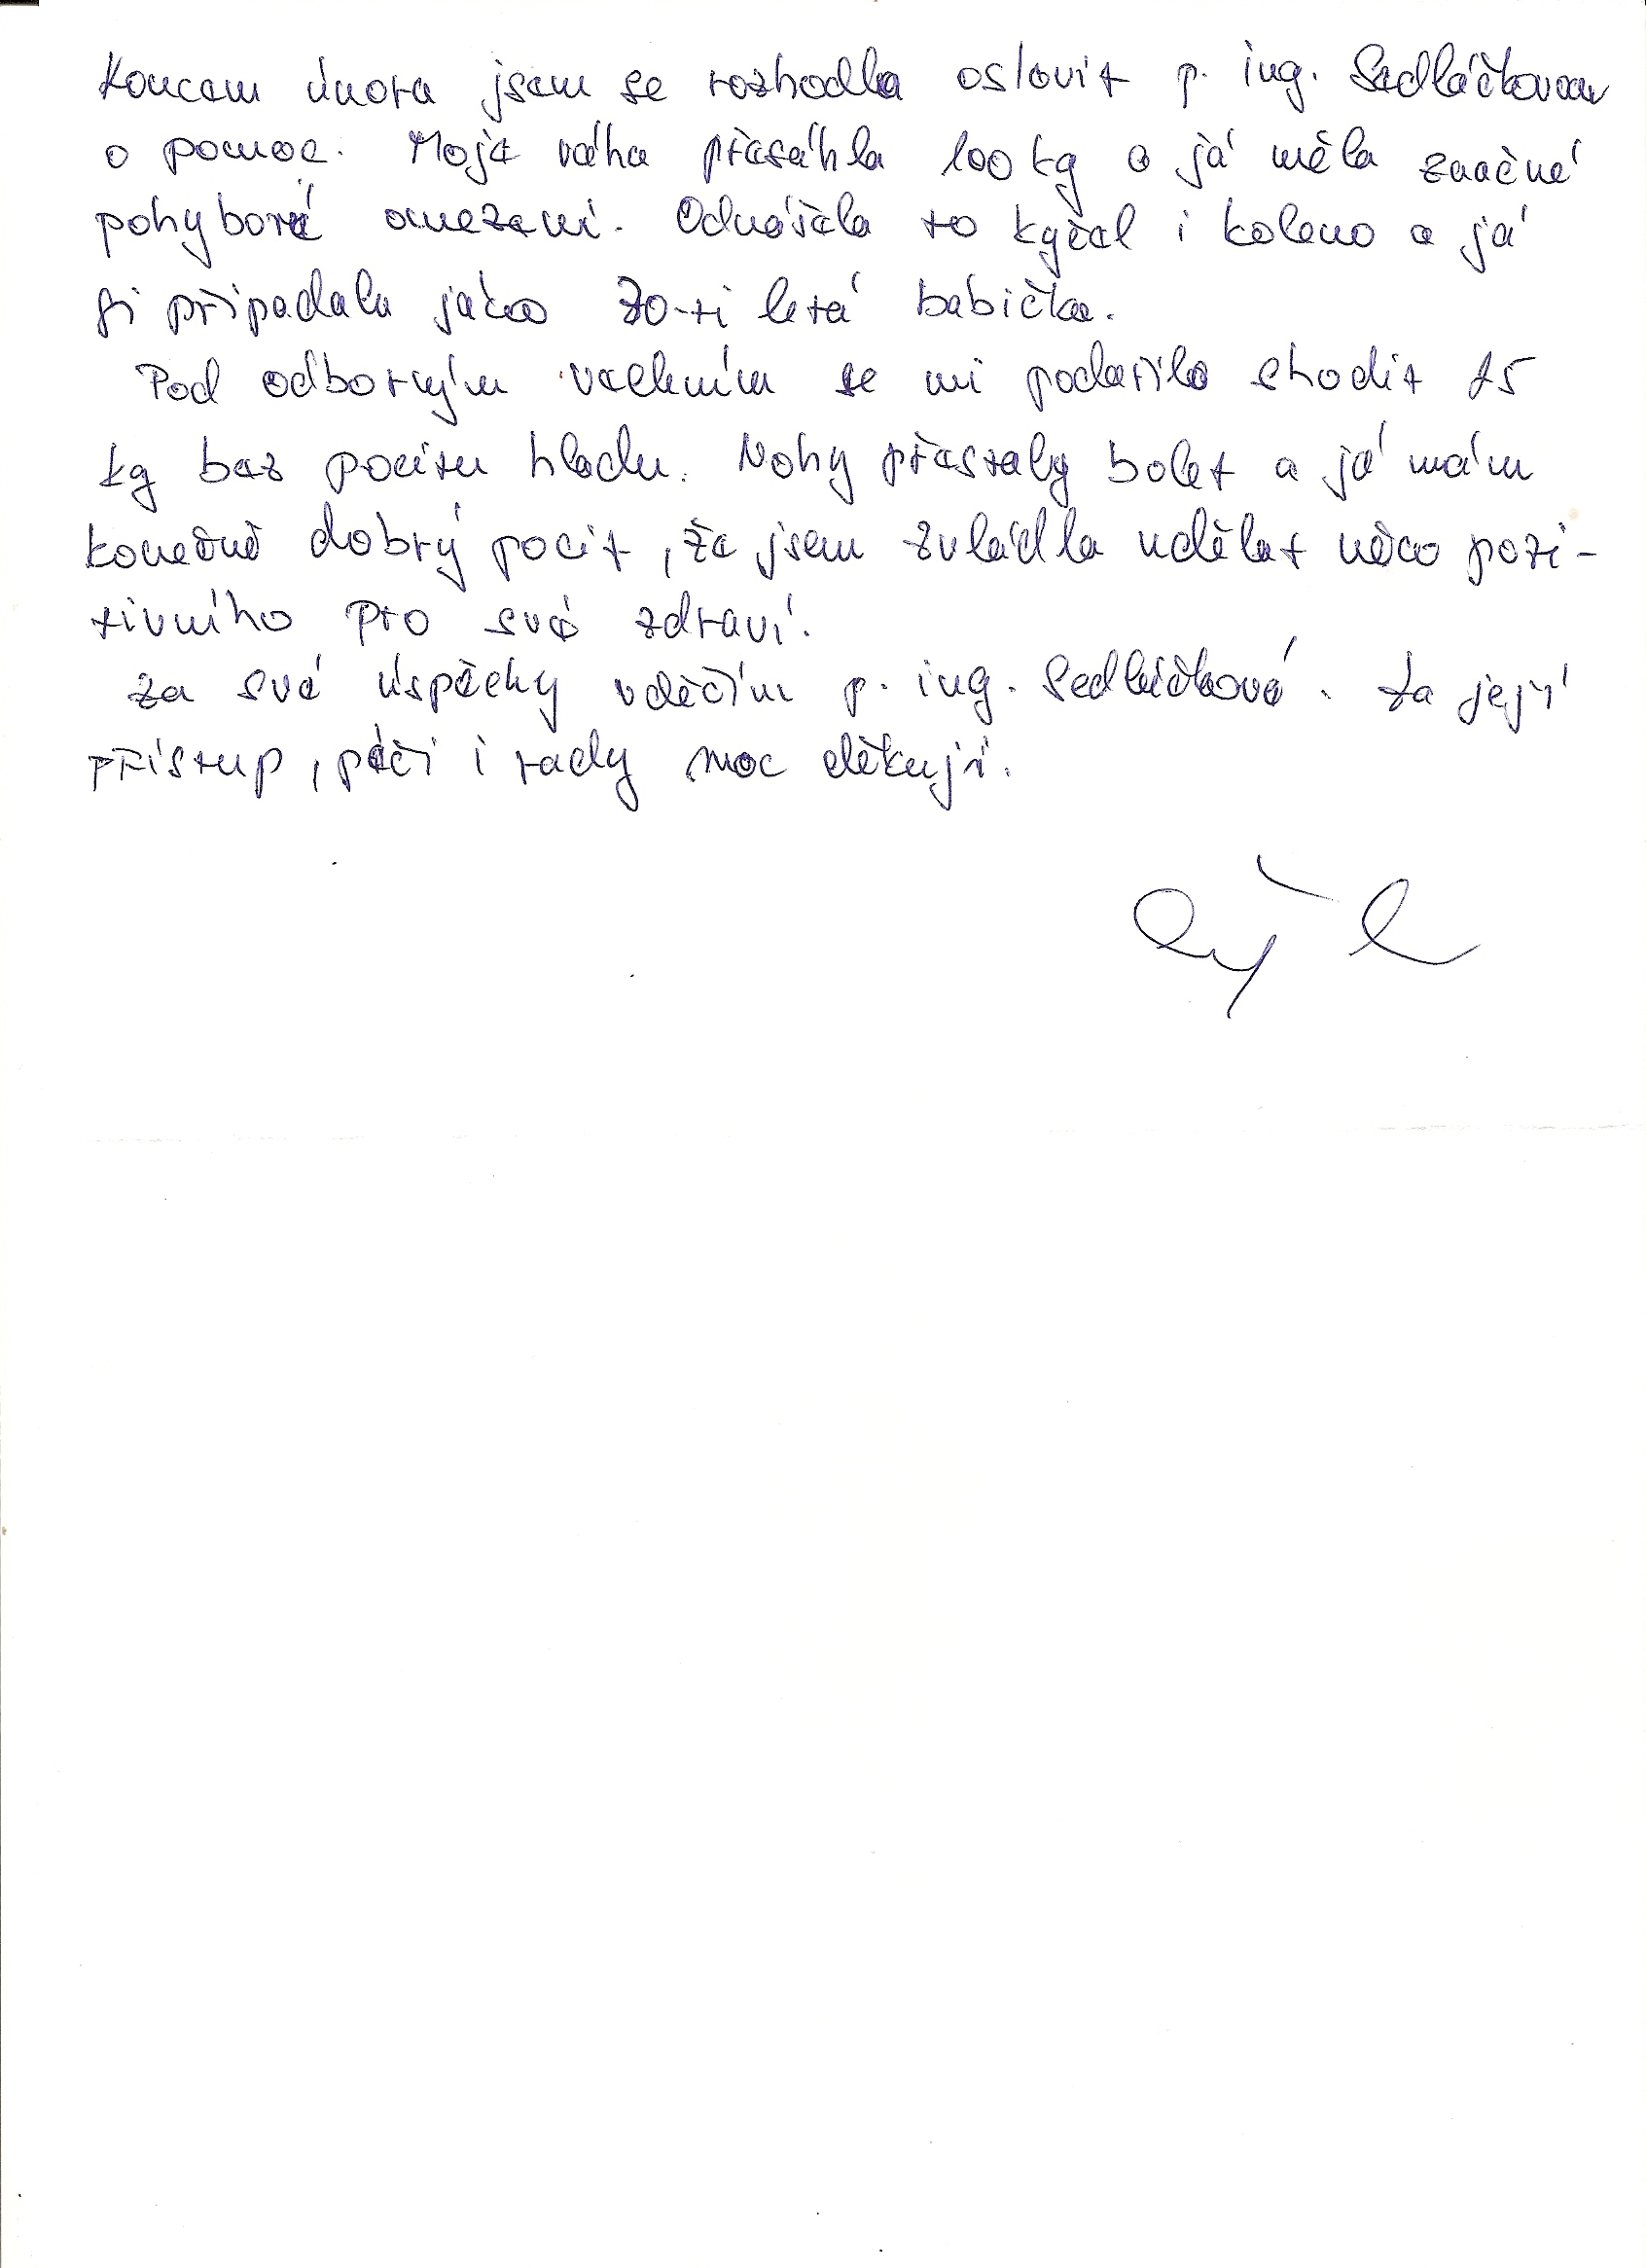 Koncem února jsem se rozhodla oslovit p. ing. Sedláčkovou
o pomoc. Moje váha přesáhla 100 kg a já měla značné
pohybové omezení. Odnášela to kyčel i koleno a já
si připadala jako 70-ti letá babička.
Pod odborným vedením se mi podařilo shodit 15
kg bez pocitu hladu. Nohy přestaly bolet a já mám
konečně dobrý pocit, že jsem zvládla udělat něco pozi-
tivního pro své zdraví.
Za své úspěchy vděčím p. ing. Sedláčkové. Za její
přístup, péči i rady moc děkuji.